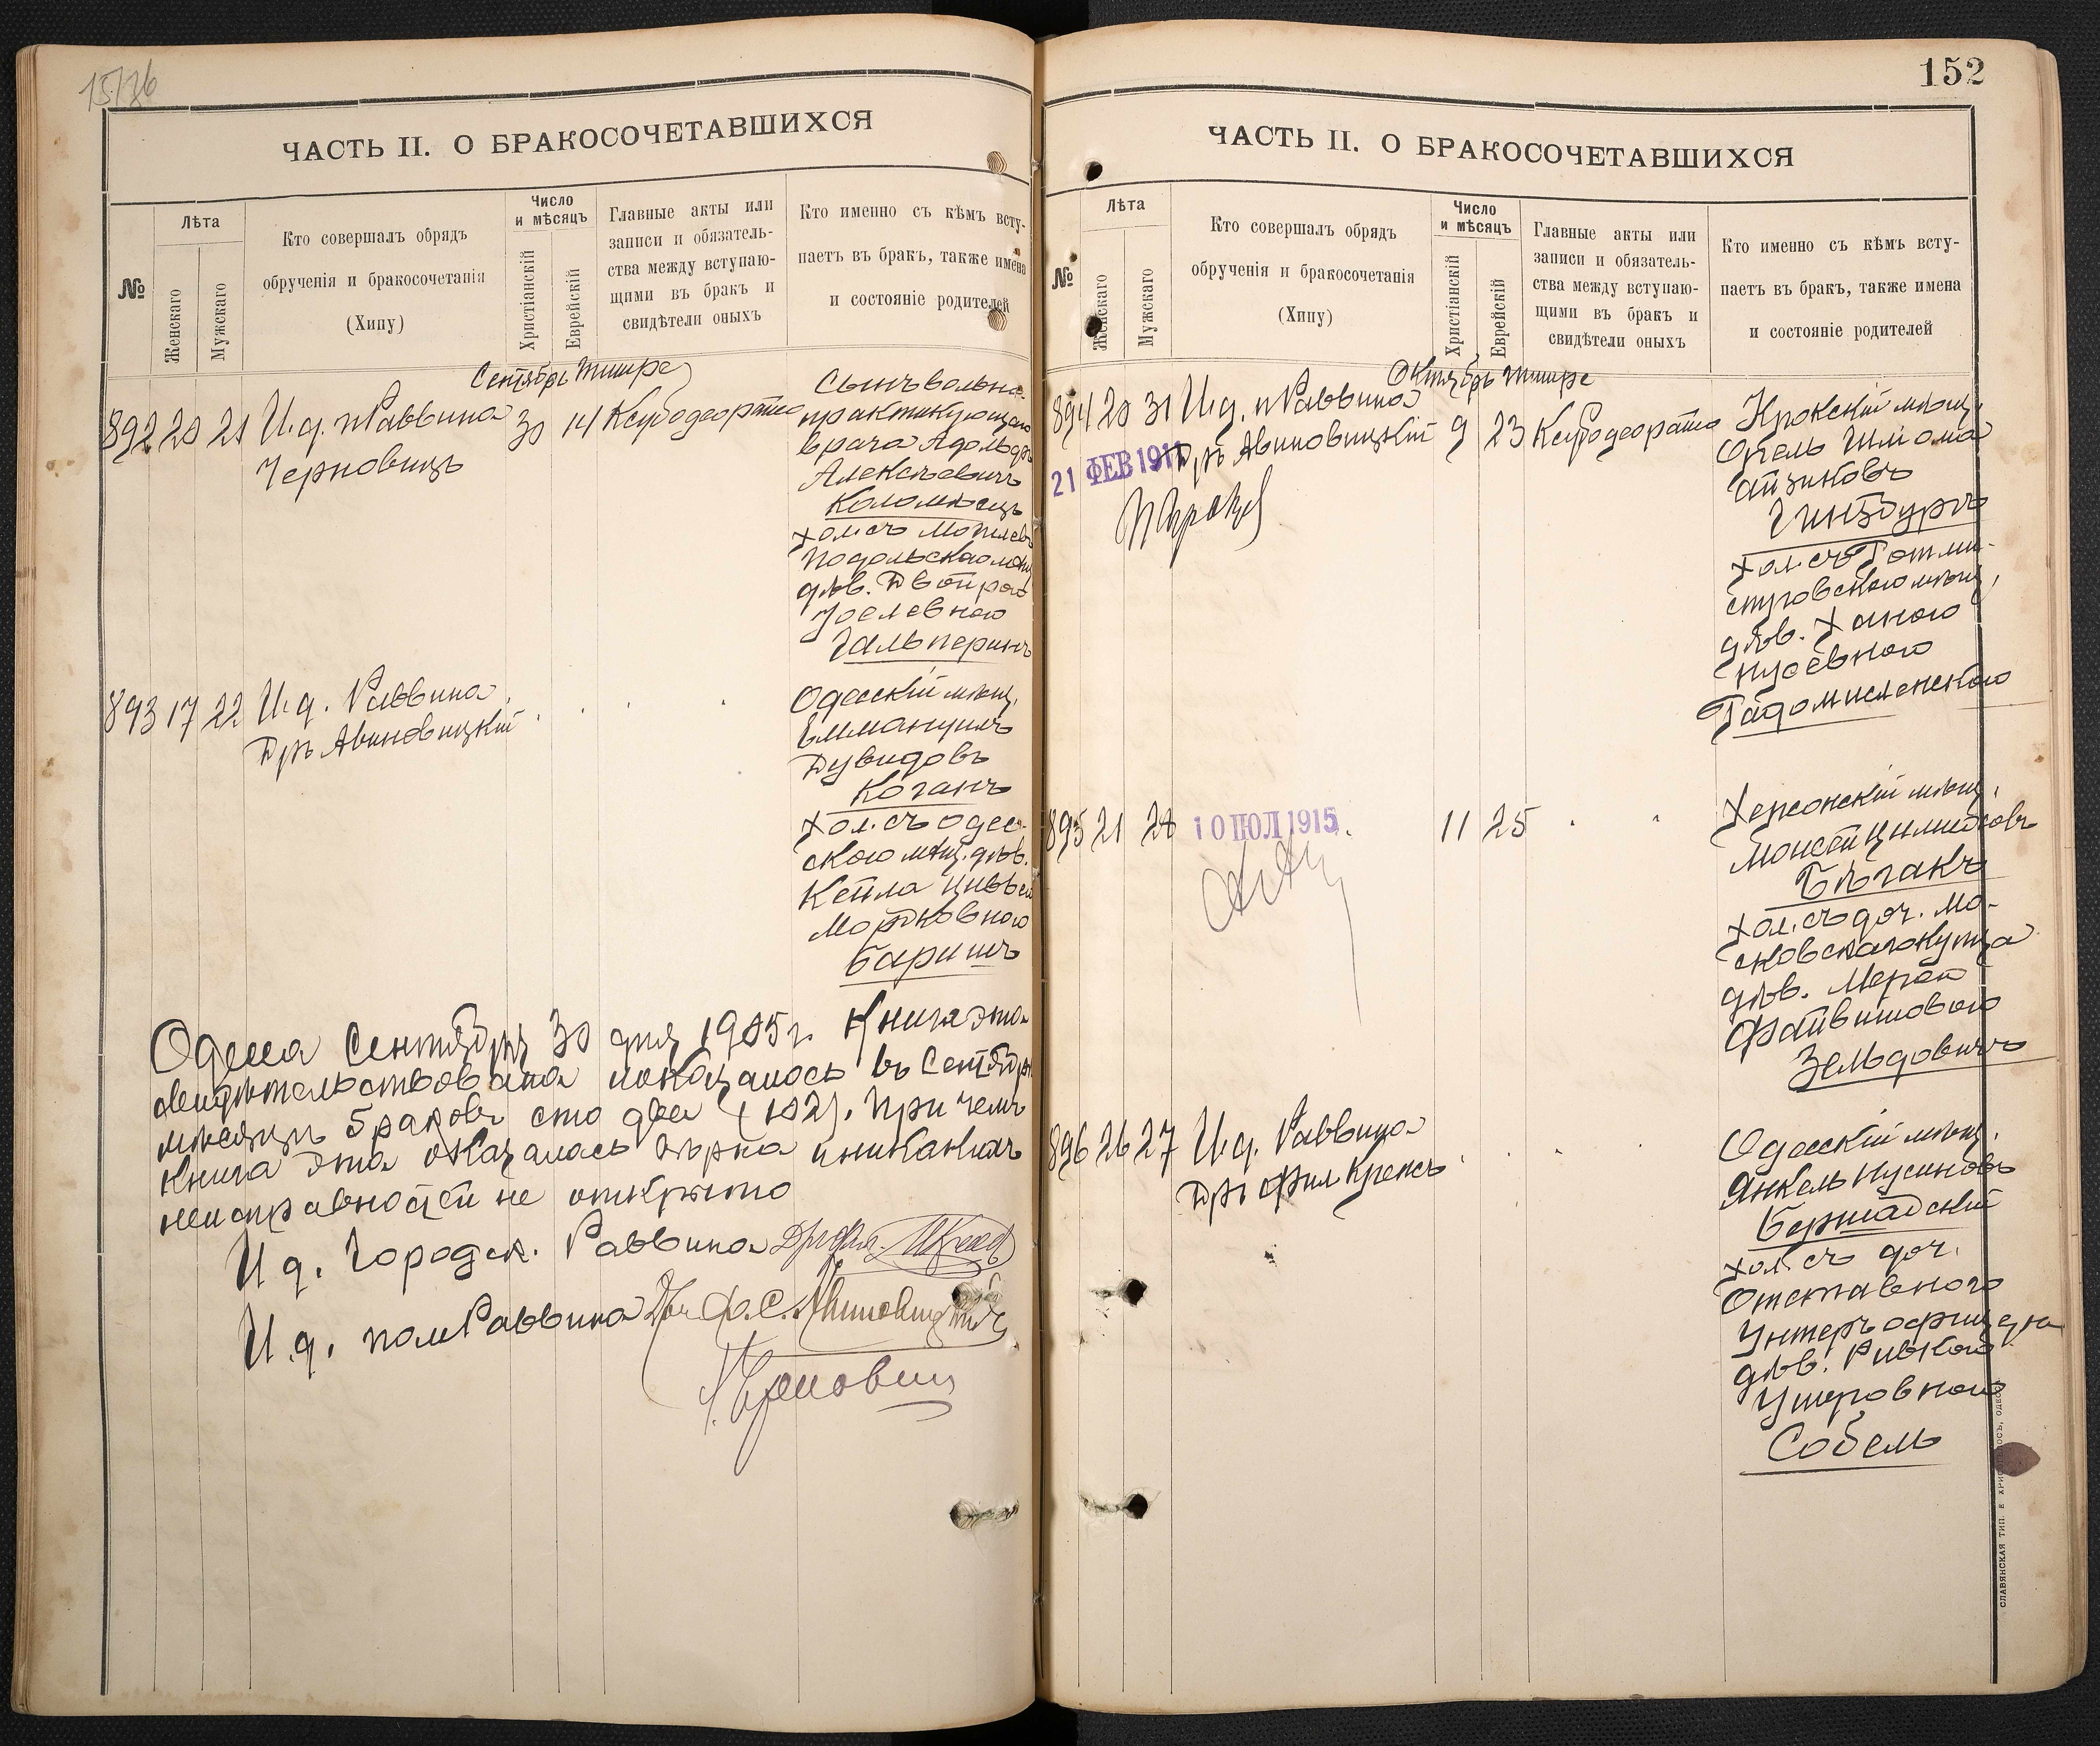 15/76
ЧАСТЬ II. О БРАКОСОЧЕТАВШИХСЯ
№
Лѣта
Женскаго
Мужскаго
Кто совершалъ обрядъ
обрученія и бракосочетанія
(Хипу)
Число
и мѣсяцъ
Христіанскій
Еврейскій
Главные акты или
записи и обязатель-
ства между вступаю-
щими въ бракъ и
свидѣтели оныхъ
Кто именно съ кѣмъ всту-
паетъ въ бракъ, также имена
и состояніе родителей
Сентябрь Тишре
892 20 21 И.д. пРаввина 30 14
Черновицъ
Сынъ вольно-
практикующаго
врача Адольфъ
Алексѣевичъ
Коломѣецъ
хол. съ Могилев
Подольскою мѣщ
дѣв. Двойрою
Іоселевною
Гальперинъ
893 17 22 И.д. Раввина
Дръ Авиновицкій
Одесскій мѣщ.
Еммануилъ
Дувидовъ
Коганъ
хол. съ одес-
скою мѣщ. дѣв.
Кейла Цивьей
Мордковною
Баришъ
Одесса Сентября 30 дня 1905 г. Книга эта
свидѣтельствована показалось въ Сентябрѣ
мѣсяцѣ браковъ сто два (102). При чемъ
книга эта оказалась вѣрна и никакихъ
неисправностей не открыто
И д. Городск. Раввина
И.д. помРаввина Дръ Ф. С. Авиновицкій
Черновиц
152
ЧАСТЬ II. О БРАКОСОЧЕТАВШИХСЯ
№
Лѣта
Женскаго
Мужскаго
Кто совершалъ обрядъ
обрученія и бракосочетанія
(Хипу)
Число
и мѣсяцъ
Христіанскій
Еврейскій
Главные акты или
записи и обязатель-
ства между вступаю-
щими въ бракъ и
свидѣтели оныхъ
Кто именно съ кѣмъ всту-
паетъ въ бракъ, также имена
и состояніе родителей
Октябрь Тишре
894 20 31 И.д. пРаввина 9 23
Дръ Авиновицкій
21 ФЕВ 191
Крокскій мѣщ.
Шлема
Айзиковъ
Гинзбургъ
хол. съ
мѣщ,
дѣв. Ханою
895 21 28 11 25
10 ІЮЛ 1915
Херсонскій мѣщ.
Бѣгакъ
хол. съ доч. Мо-
сковскаго купца
дѣв. Мерой
Файвишовою
Зельдовичъ
896 26 27 И.д. Раввина
Дръ фил Крепсъ
Одесскій мѣщ.
Янкель Нусиновъ
Бершадскій
хол. съ доч.
Отставного
Унтеръ офицера
дѣв. Ривкою
Ушеровною
Собель
СЛАВЯНСКАЯ ТИП. Е ХРИСОГЕЛОСЪ, ОДЕССА